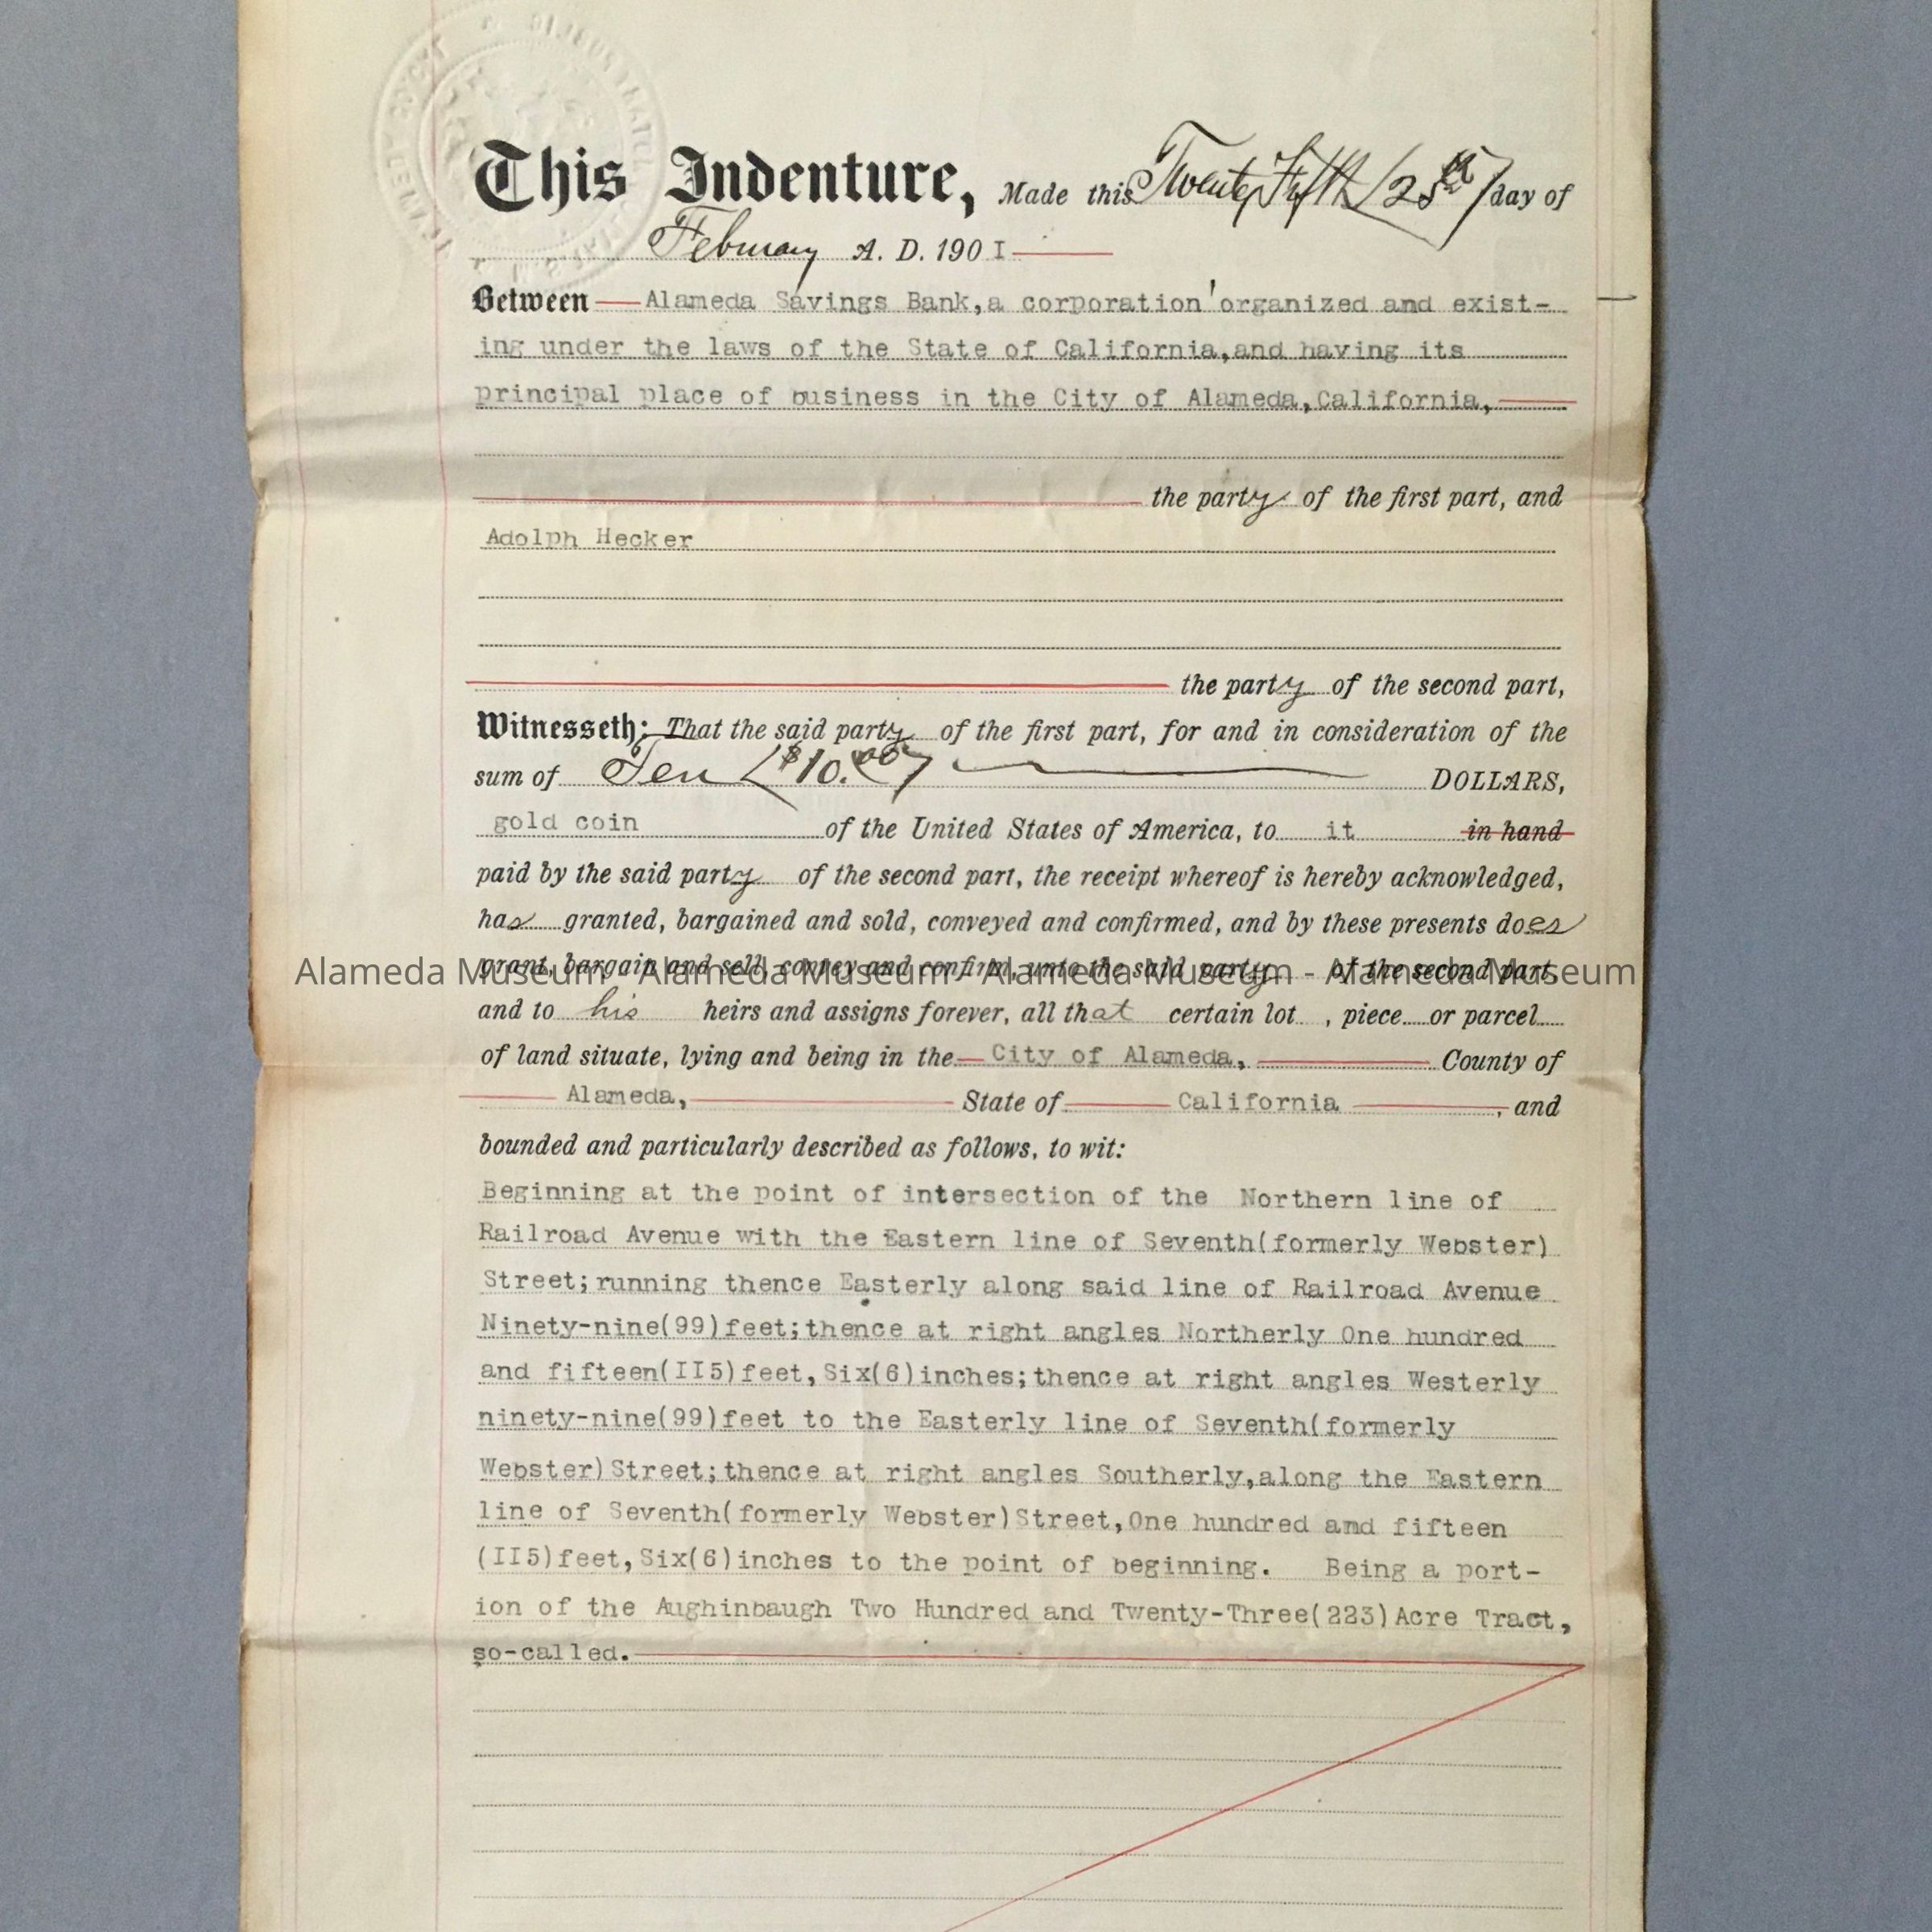 This Indenture, Made this Twenty Fifth (25th) day of
February A. D. 190I
Between Alameda Savings Bank,a corporation'organized and exist-
ing under the laws of the State of California,and having its
principal place of business in the City of Alameda,California,
the party of the first part, and
Adolph Hecker
the party of the second part,
Witnesseth: That the said party of the first part, for and in consideration of the
sum of Ten ($10.00) DOLLARS,
gold coin of the United States of America, to it in hand
paid by the said party of the second part, the receipt whereof is hereby acknowledged,
has granted, bargained and sold, conveyed and confirmed, and by these presents does
grant, bargain and sell, convey and confirm, unto the said party of the second part,
Alameda Museum - Alameda Museum - Alameda Museum - Alameda Museum
and to his heirs and assigns forever, all that certain lot , piece or parcel
of land situate, lying and being in the City of Alameda, County of
Alameda, State of California , and
bounded and particularly described as follows, to wit:
Beginning at the point of intersection of the Northern line of
Railroad Avenue with the Eastern line of Seventh(formerly Webster)
Street;running thence Easterly along said line of Railroad Avenue
Ninety-nine(99)feet;thence at right angles Northerly One hundred
and fifteen(II5)feet,Six(6)inches;thence at right angles Westerly
ninety-nine(99)feet to the Easterly line of Seventh(formerly
Webster)Street;thence at right angles Southerly,along the Eastern
line of Seventh(formerly Webster)Street,One hundred and fifteen
(II5)feet,Six(6)inches to the point of beginning. Being a port-
ion of the Aughinbaugh Two Hundred and Twenty-Three(223)Acre Tract,
so-called.